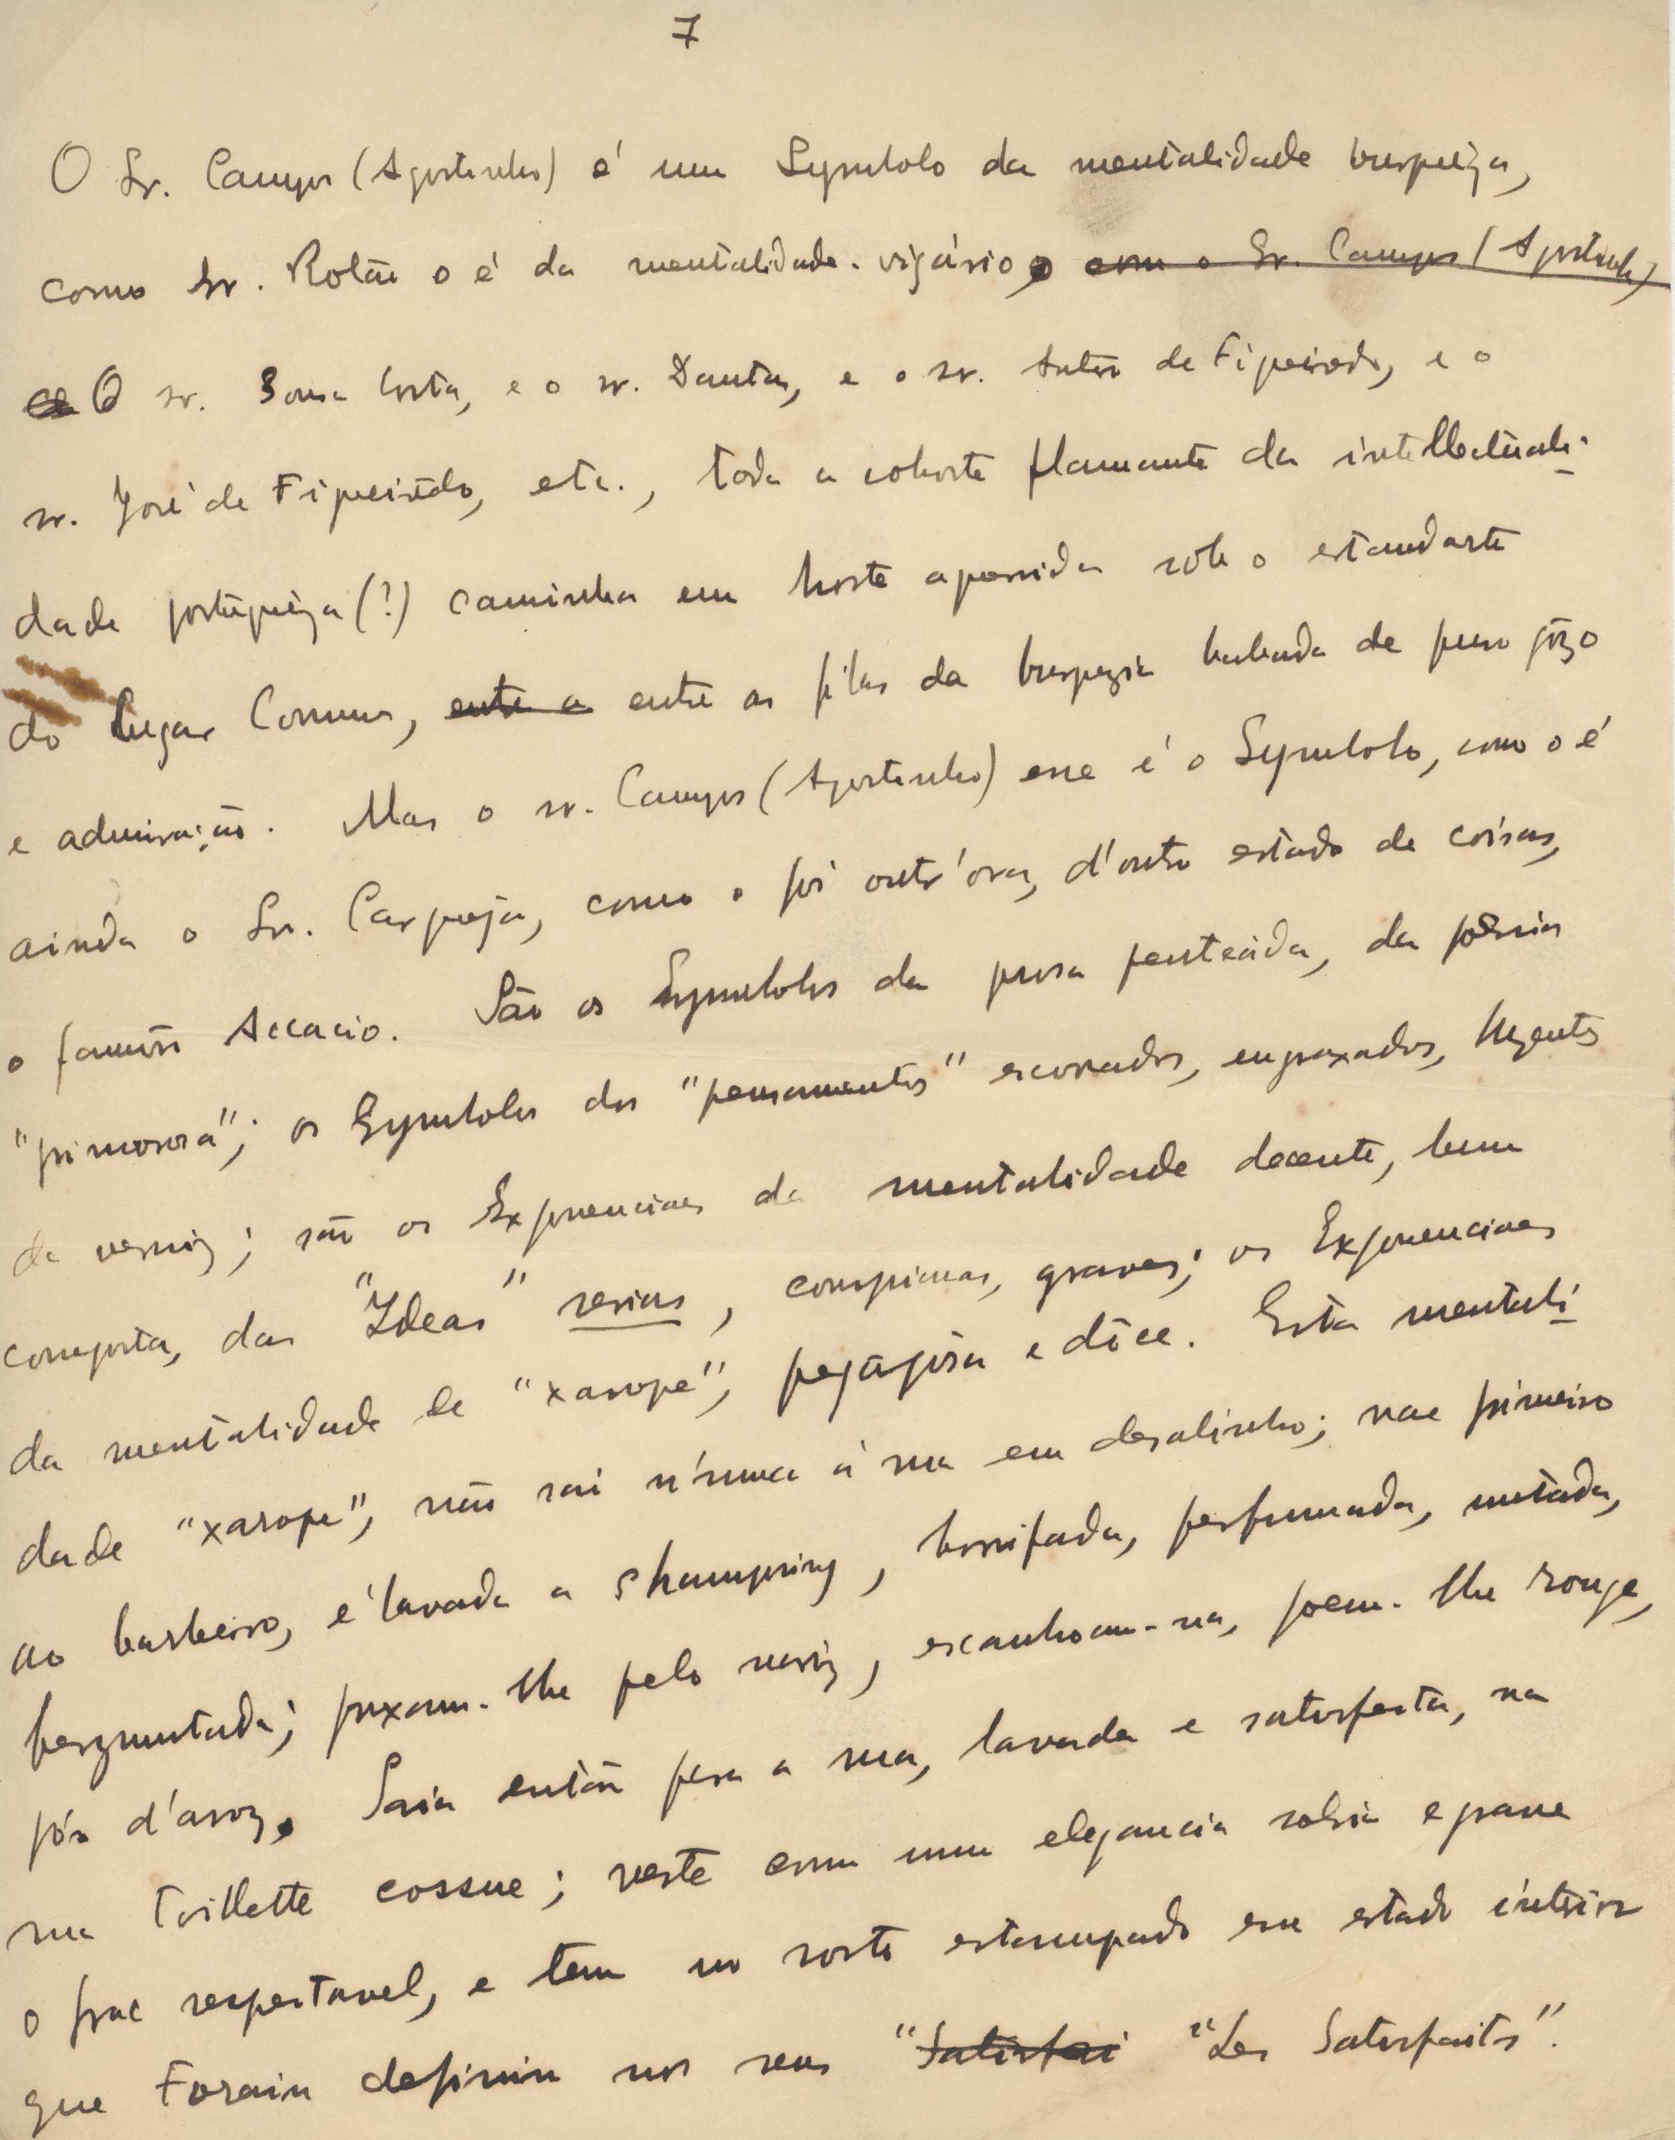 7
O Sr. Campos (Agostinho) é um Symbolo da mentalidade burgueza,
como Sr. Rolão o é da mentalidade-vigário, e com o Sr. Campos (Agostinho)
O sr. Sousa Costa, e o sr. Dantas, e o sr. Antero de Figueiredo, e o
sr. José de Figueiredo, etc., toda a cohorte flamante da intellectuali-
dade portugueza (?) caminha em hoste aguerrida sob o estandarte
do Lugar Commum, entre a entre as filas da burguezia babada de puro gôzo
e admiração. Mas o sr. Campos (Agostinho) esse é o Symbolo, como o é
ainda o Sr. Carqueja, como o foi outr'ora, d'outro estado de coisas,
o famôso Accacio. São os Symbolos da prosa penteada, da poesia
"primorosa"; os Symbolos dos "pensamentos" escovados, engraxados, luzentes
de verniz; são os Exponenciaes da mentalidade decente, bem
composta, das "Ideas" serias, conspicuas, graves; os Exponenciaes
da mentalidade de "xarope", pegajósa e dôce. Esta mentali-
dade "xarope", não sai n'unca á rua em desalinho; vae primeiro
ao barbeiro, é lavada a shampoing, borrifada, perfumada, untada,
bezuntada; puxam-lhe pelo nariz, escanhoam-na, poem-lhe rouge,
pós d'arroz. Saia então para a rua, lavada e satisfeita, na
sua toillette cossue; veste com uma elegancia sobria e grave
o frac respeitavel, e tem no rosto estampado esse estado interior
que Forain definiu nos seus "Satisfai "Les Satisfaits".